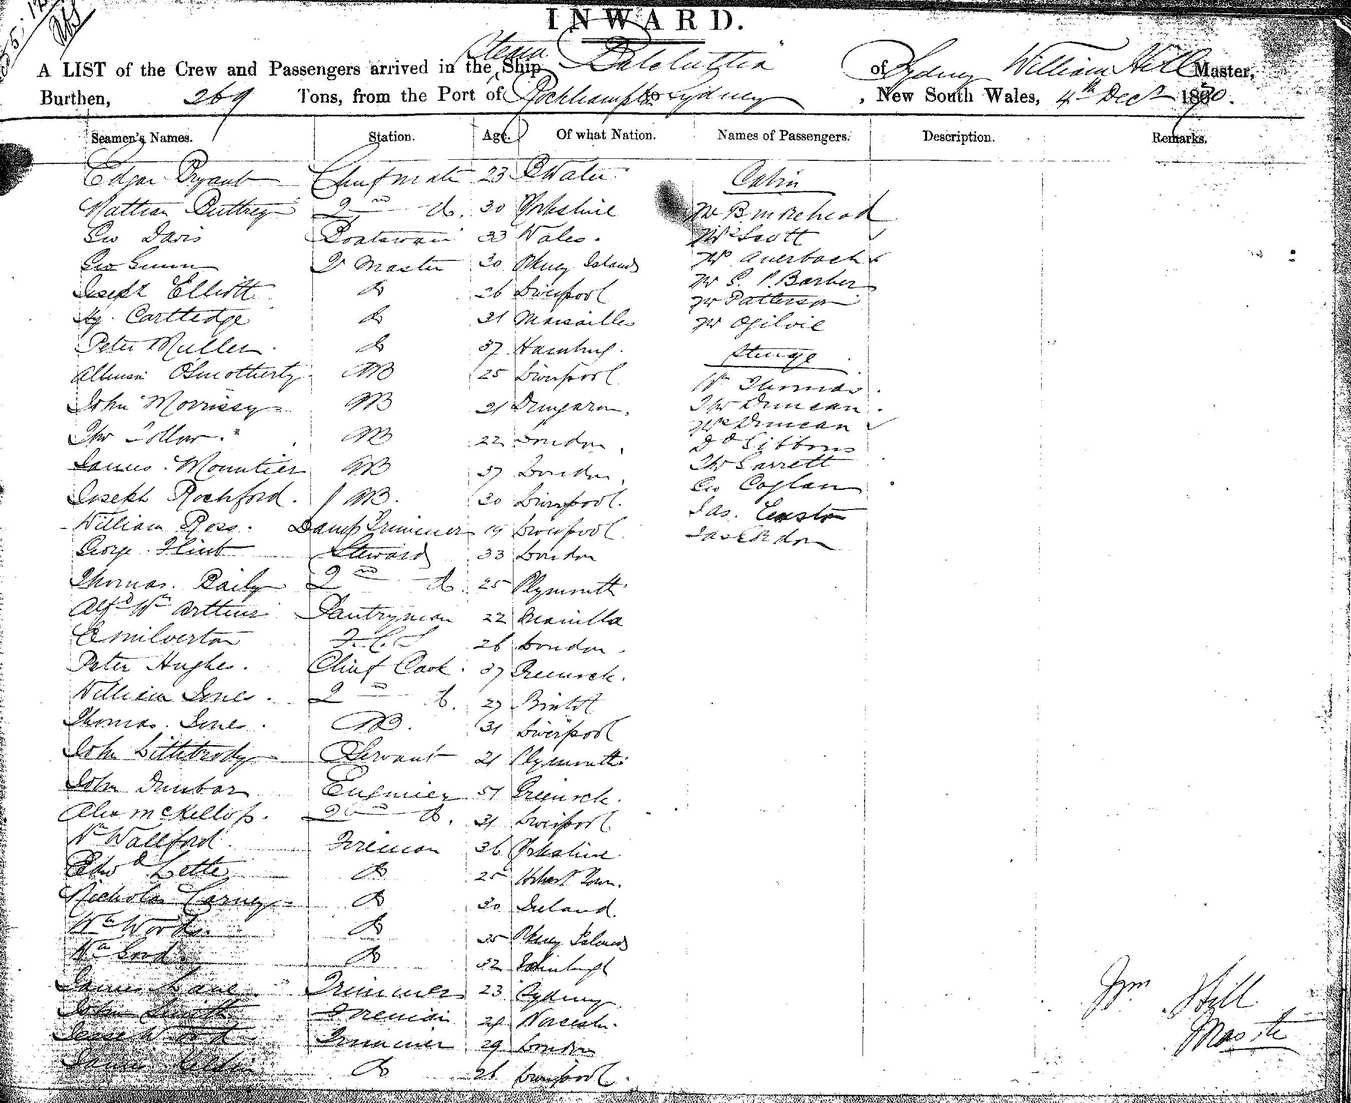 INWARD.
A LIST of the Crew and Passengers arrived in the Steam Ship Balclutha of Sydney William Hill Master,
Burthen, 269 Tons, from the Port of Rockhampton to Sydney, New South Wales, 4th Decr 1880.
Seamen's Names. Station. Age. Of what Nation. Names of Passengers. Description. Remarks.
Edgar Bryant Chief mate 23 Cabin
30 Yorkshire Mr B Morehead
Geo Davis Boatswain 33 Wales. Scott
Geo Gunn Qr Master 30 Orkney Islands Mr Auerbach
Joseph Elliott Do 26 Liverpool Mr G. P. Barber
Hy. Cartledge Do 31 Marseilles Mr Patterson
Peter Muller. Do 37 Hamburg. Mr Ogilvie
AB 25 Liverpool Steerage
John Morrissy AB 21 Dungarvn. Wm Thomas
AB 22 London. Thos Duncan
James Mountier AB 37 London. Mrs Duncan
Joseph Rochford. AB. 30 Liverpool. D O Gibbons
William Ross. Lamp Trimmer 19 Liverpool. Thos Garrett
George Flint Steward 33 London Geo Coglan
Thomas. Baily 2nd do. 25 Plymouth Jas. Easton
Alfd Wm Arthur Pantryman 22 Manilla
E Milverton F.C.S 26 London.
Peter Hughes. Chief Cook. 37 Greenock.
William Jones. 2nd do. 27 Bristol
Thomas. Jones. AB. 31 Liverpool
John Servant 21 Plymouth
John Dunbar Engineer 51 Greenock.
Alex McKellop. 2nd do. 31 Liverpool
Wm Wallford. Fireman 36 Yorkshire
Edwd Lette Do 25 Hobart Town.
Nicholas Carney Do 30 Ireland.
Wm Woods. Do 35 Orkney Islands
Wm Good. Do 32 Edinburgh
James Lane Trimmer 23 Sydney
John Smith Fireman
Jesse Wood Trimmer 29 London
James Do 26 Liverpool.
Wm. Hill
Master